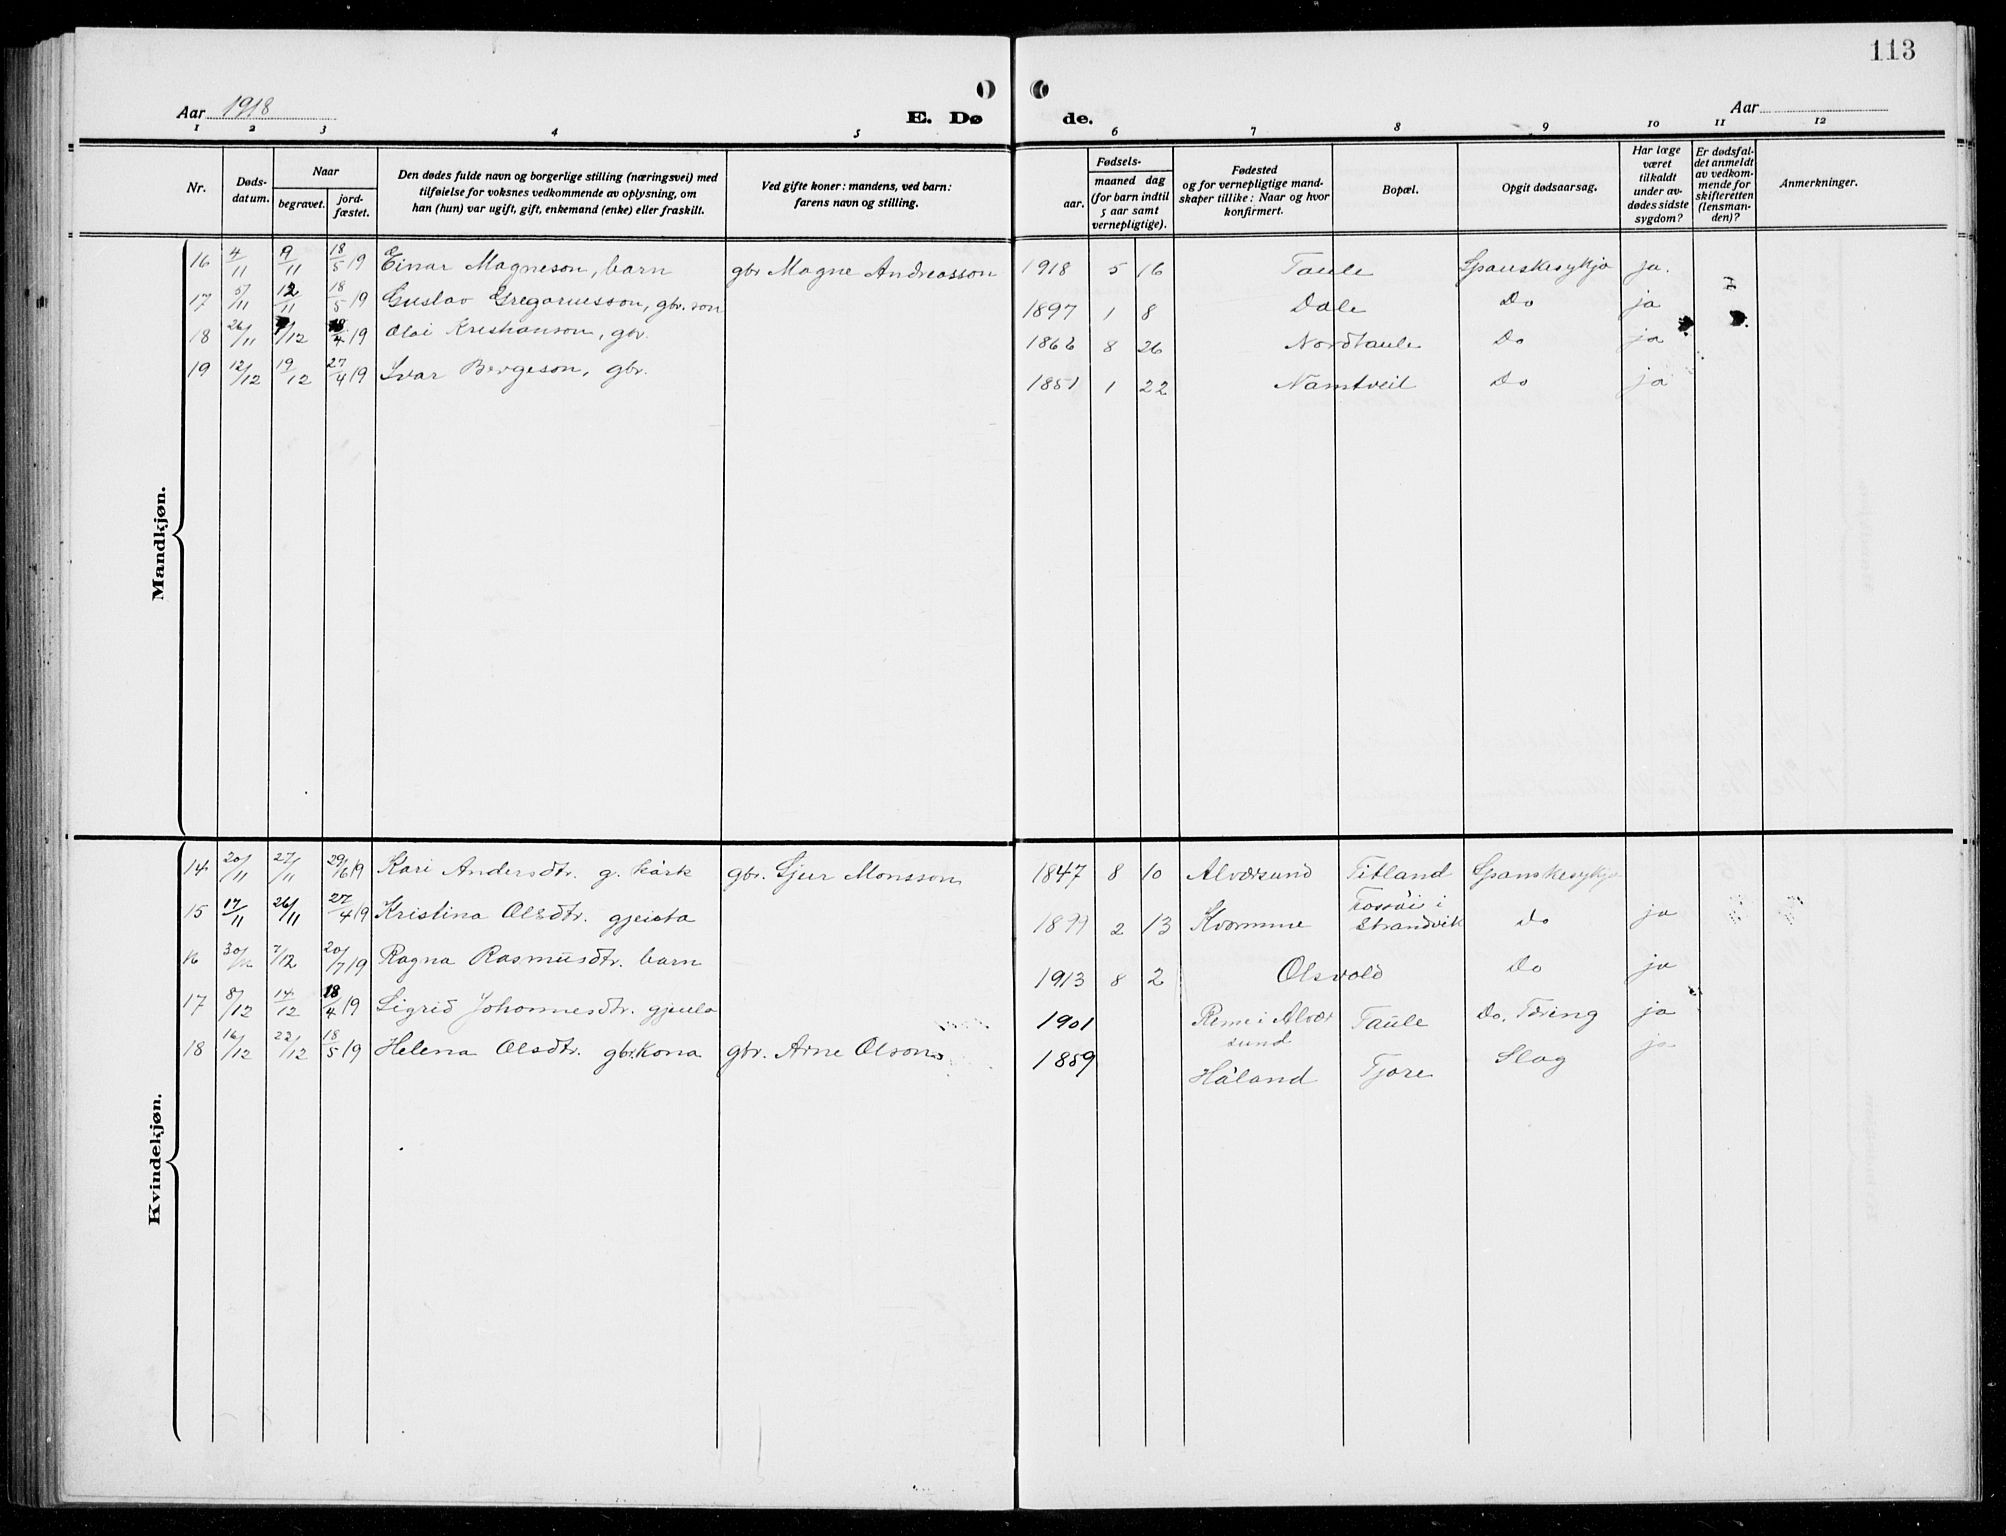 113
Aar 1918
E. Dø
de.
Aar
1 2 3 4 5 6 7 8 9 10 11 12
Nr.
Døds-
datum.
Naar
begravet.
jord-
fæstet.
Den dødes fulde navn og borgerlige stilling (næringsvei) med
tilføielse for voksnes vedkommende av oplysning, om
han (hun) var ugift, gift, enkemand (enke) eller fraskilt.
Ved gifte koner: mandens, ved barn:
farens navn og stilling.
Fødsels-
aar.
maaned dag
(for barn indtil
5 aar samt
vernepligtige).
Fødested
og for vernepligtige mand-
skaper tillike: Naar og hvor
konfirmert.
Bopæl.
Opgit dødsaarsag.
Har læge
været
tilkaldt
under av-
dødes sidste
sygdom?
Er dødsfal-
det anmeldt
av vedkom-
mende for
skifteretten
(lensman-
den)?
Anmerkninger.
Mandkjøn.
16 4/11 9/11 18/5 19 Einar Magneson, barn gbr Magne Andreasson 1918 5 16 Taule Spanskesykja ja.
17 5/11 12/11 18/5 19 Gustav Gregoriusson, gbr. son 1897 1 8 Dale Do ja
18 26/11 /12 18/4 19 Olai Kristianson, gbr. 1862 8 26 Nordtaule Do ja
19 12/12 19/12 27/4 19 Ivar Bergeson, gbr. 1851 1 22 Namtveit Do ja
Kvindekjøn.
14 20/11 27/11 29/6 19 Kari Andersdtr. g. kårk gbr. Sjur Monsson 1847 8 10 Alversund Titland Spanskesykja
15 17/11 26/11 27/4 19 Kristina Olsdtr. gjenta 1899 2 13 Kvamme Fossøi i
Strandvik Do ja
16 30/ 7/12 20/7 19 Ragna Rasmusdtr. barn 1913 8 2 Olsvold Do ja
17 8/12 14/12 18/4 19 Sigrid Johannesdtr. gjenta 1901 Reme i Alver
sund Taule Do. Tæring ja
18 16/12 22/12 18/5 19 Helena Olsdtr. gbr.kona gbr. Arne Olson 1859 Håland Tjore Slag ja